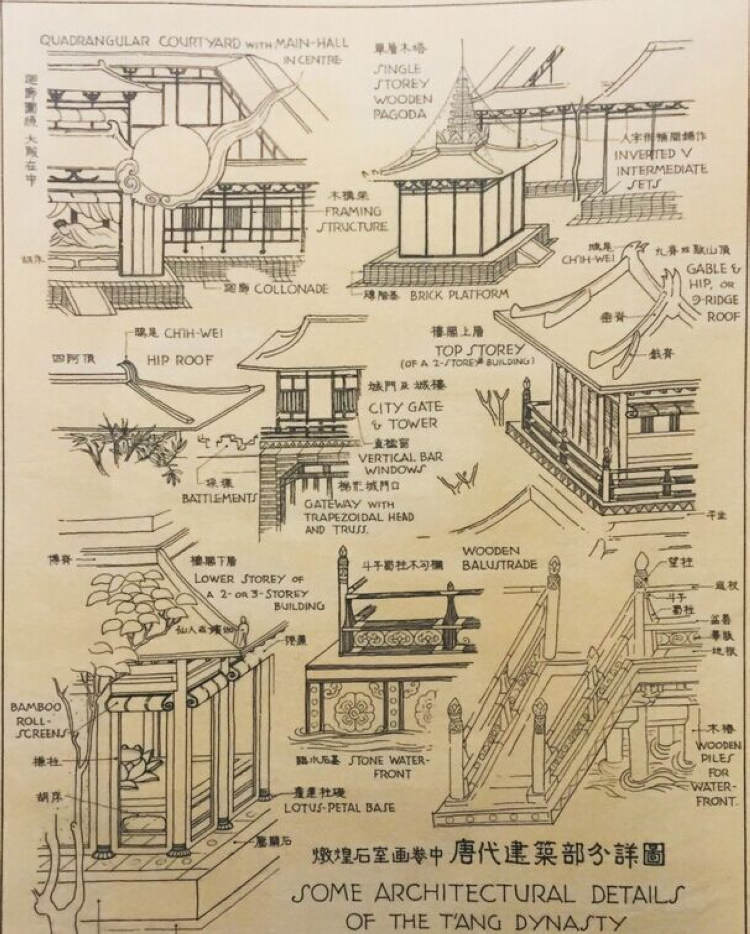 QUADRANGULAR COURTYARD WITH MAIN-HALL
IN CENTRE
迴廊圍繞 大殿在中
單層木塔
SINGLE
STOREY
WOODEN
PAGODA
INVERTED V
INTERMEDIATE
SETS
木構架
FRAMING
STRUCTURE
胡床
迴廊 COLLONADE
磚階基 BRICK PLATFORM
鴟尾
CH'IH-WEI
九脊殿歇山頂
GABLE &
HIP, OR
9-RIDGE
ROOF
垂脊
戧脊
鴟尾 CH'IH-WEI
四阿頂
HIP ROOF
樓閣上層
TOP STOREY
(OF A 2-STOREY BUILDING)
城門及城樓
CITY GATE
& TOWER
直櫺窗
VERTICAL BAR
WINDOWS
BATTLEMENTS
梯形城門口
GATEWAY WITH
TRAPEZOIDAL HEAD
AND TRUSS.
平坐
博脊
樓閣下層
LOWER STOREY OF
A 2- OR 3-STOREY
BUILDING
斗子蜀柱木勾欄
WOODEN
BALUSTRADE
望柱
尋杖
斗子
蜀柱
盆脣
華版
地栿
BAMBOO
ROLL-
SCREENS
檐柱
胡床
臨水石基 STONE WATER-
FRONT
木樁
WOODEN
PILES
FOR
WATER-
FRONT.
覆蓮柱礎
LOTUS-PETAL BASE
壓闌石
燉煌石室画卷中 唐代建築部分詳圖
SOME ARCHITECTURAL DETAILS
OF THE T'ANG DYNASTY